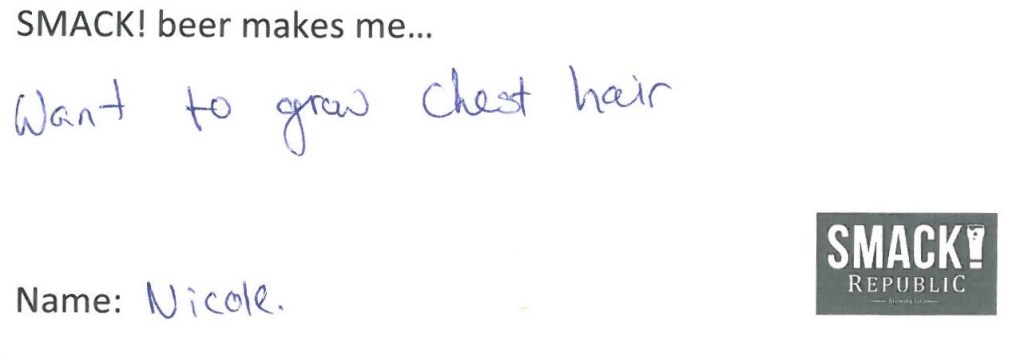 SMACK! beer makes me...
Want to grow chest hair
SMACK!
REPUBLIC
Name: Nicole.